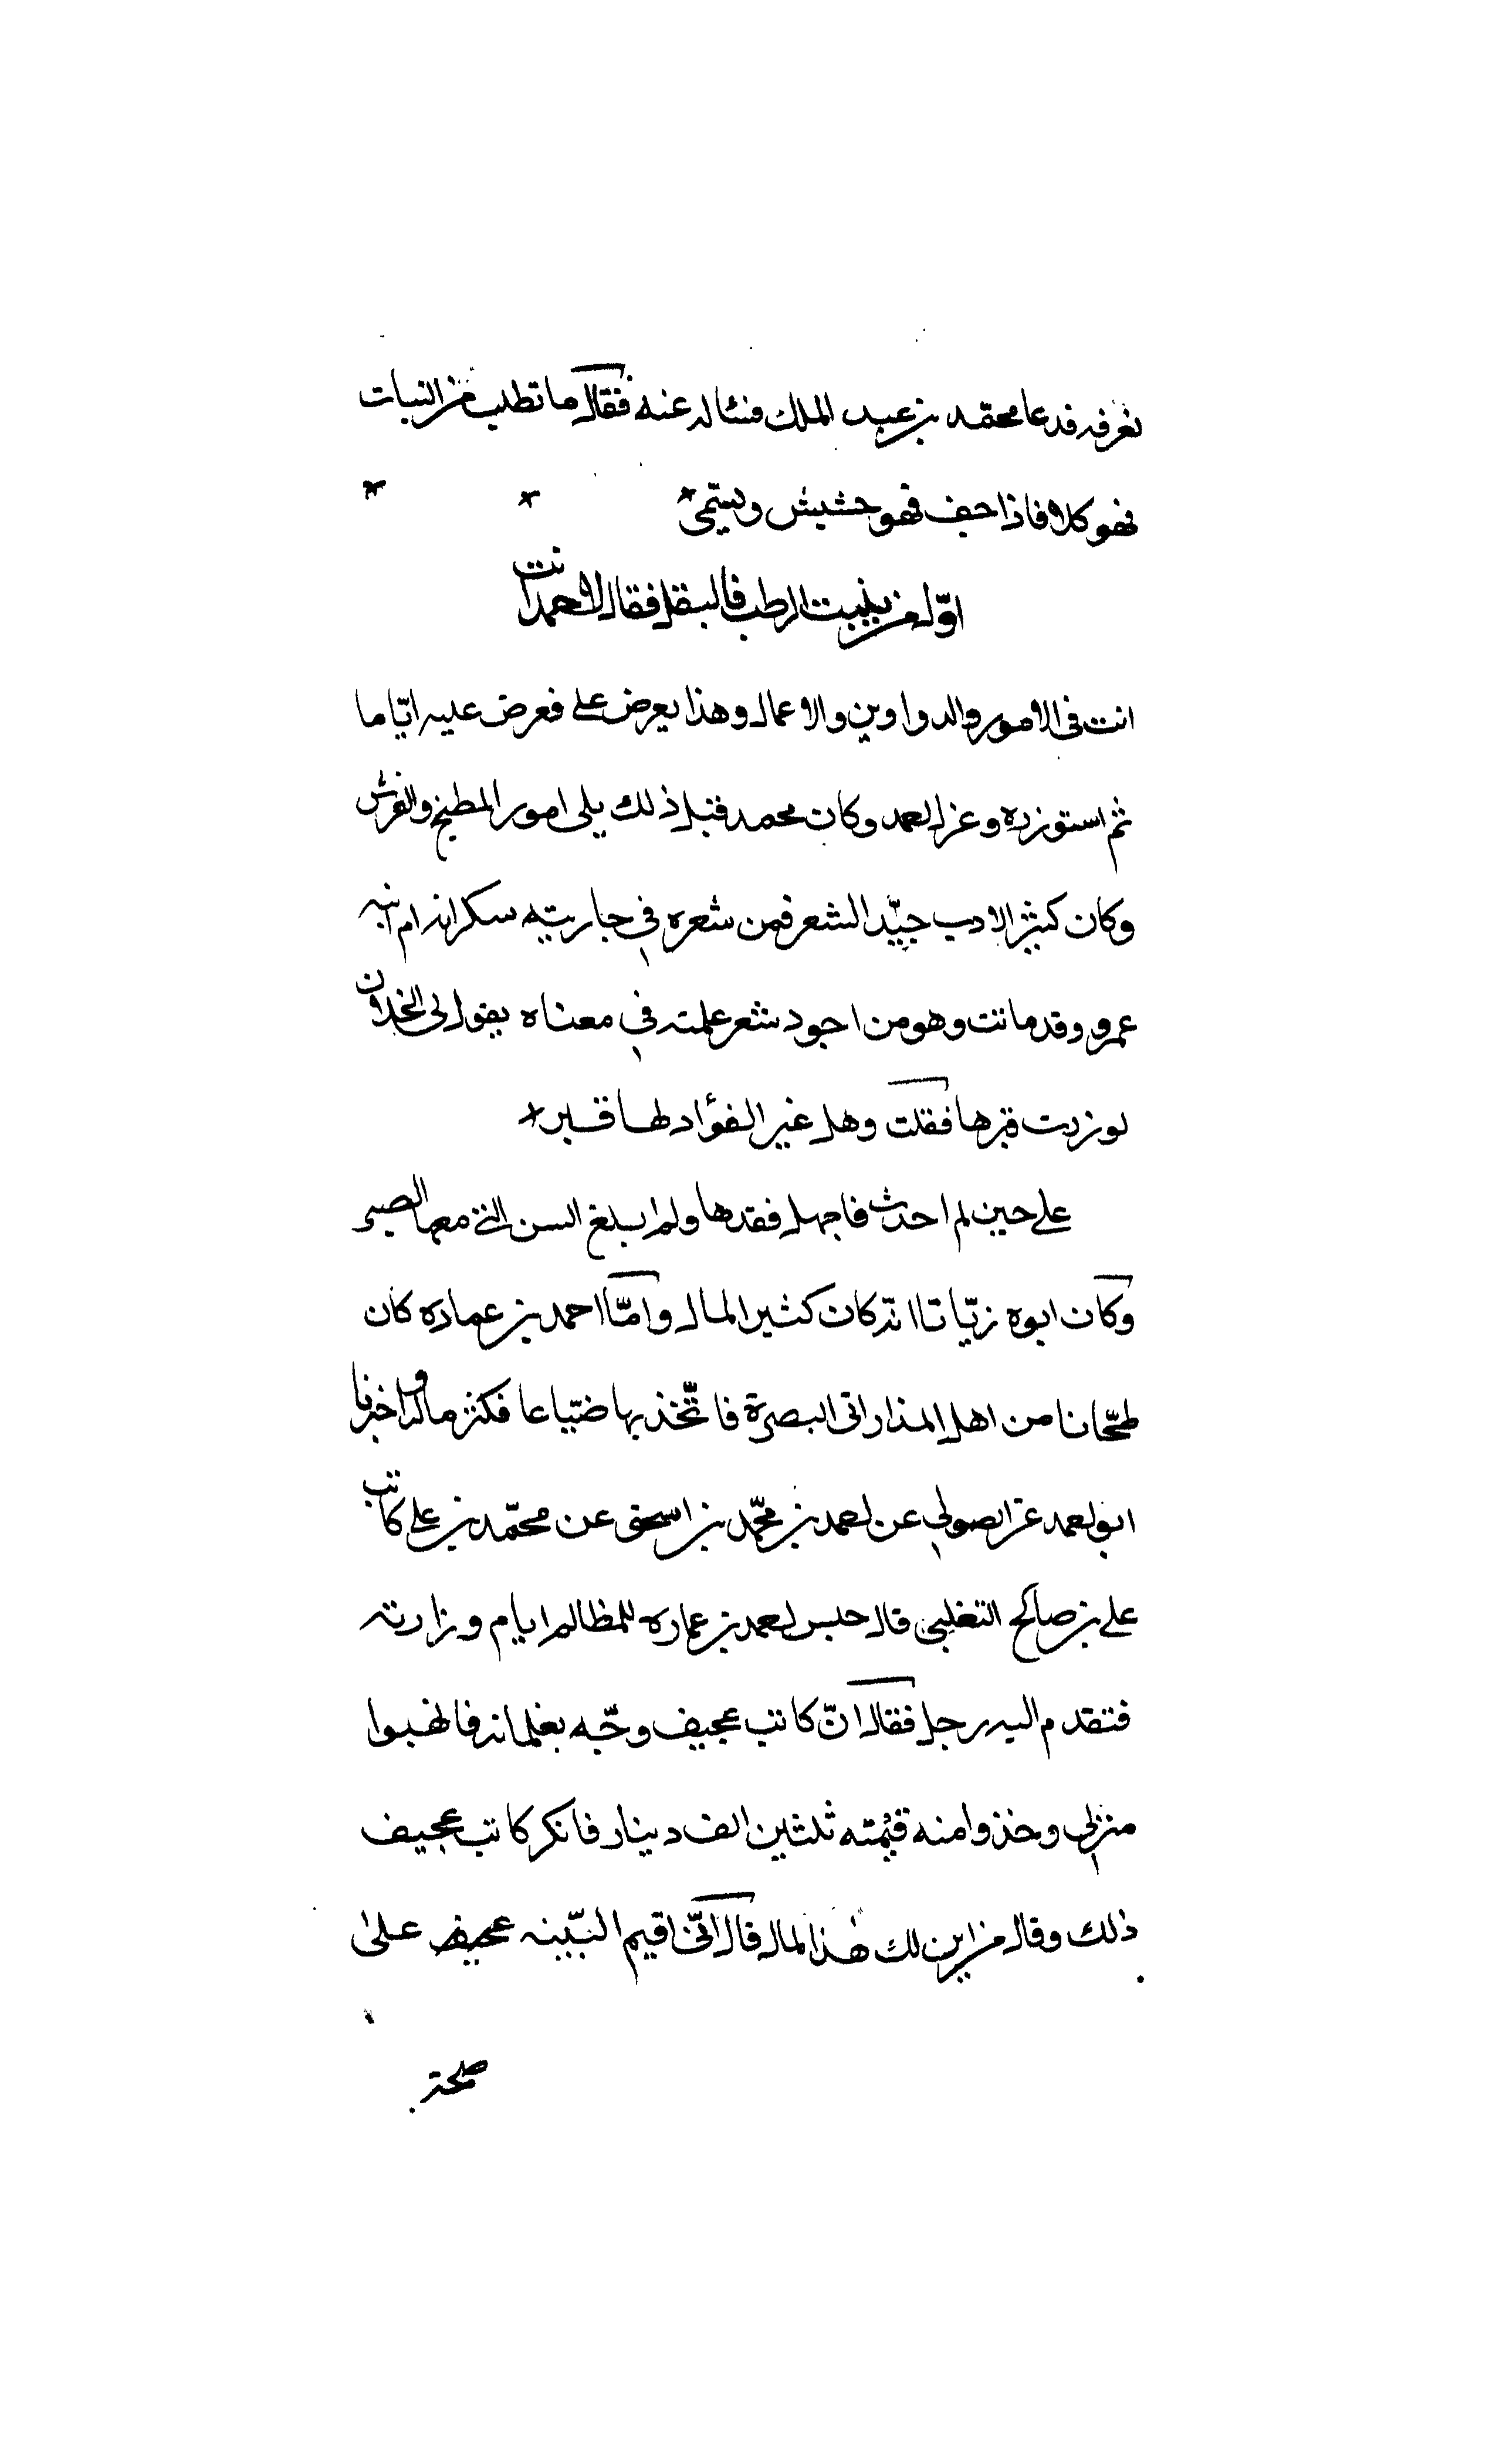 نعرفه فدعا محمّد بن عبد الملك فسئاله عنه فقال ما تطلب من النبات
فهو كلا فاذا جف فهو حشيش ويسمّى
اوّل من ينبت الرطب فالبقل فقال لاحمد انت
انت فى الامور والدواوين والاعمال وهذا يعرض على فعرض عليه ايّاما
ثم استوزره وعزل احمد وكان محمد قبل ذلك يلى امور المطبخ والفرش
وكان كثير الادب جيّد الشعر فمن شعره في جاريته سكرانه ام ابنه
عمرو وقد ماتت وهو من اجود شعر علمته في معناه يقول لى الخدان
لو زرت قبرها فقلت وهل غير الفؤاد لها قبر
على حين لم احدث فاجهل فقدها ولم ابلغ السن التى معها الصبر
وكان ابوه زيّاتا الا انّه كان كثير المال وامّا احمد بن عماره كان
طحّانا من اهل المذار اتى البصرة فاتّخذ بها ضيّاعا فكثر ماله واخبرنا
ابو احمد عن الصولي عن احمد بن محمّد بن اسحق عن محمّد بن على كاتب
على بن صالح التغلبى قال جلس احمد بن عماره للمظالم ايام وزارته
فتقدم اليه رجل فقال انّ كاتب عجيف وجّه بغلمانه فانهبوا
منزلي وخذوا منه قيمته ثلثين الف دينار فانكر كاتب عجيف
ذلك وقال من اين لك هذا المال قال انّى اقيم البيّنه عجيف على
صحته